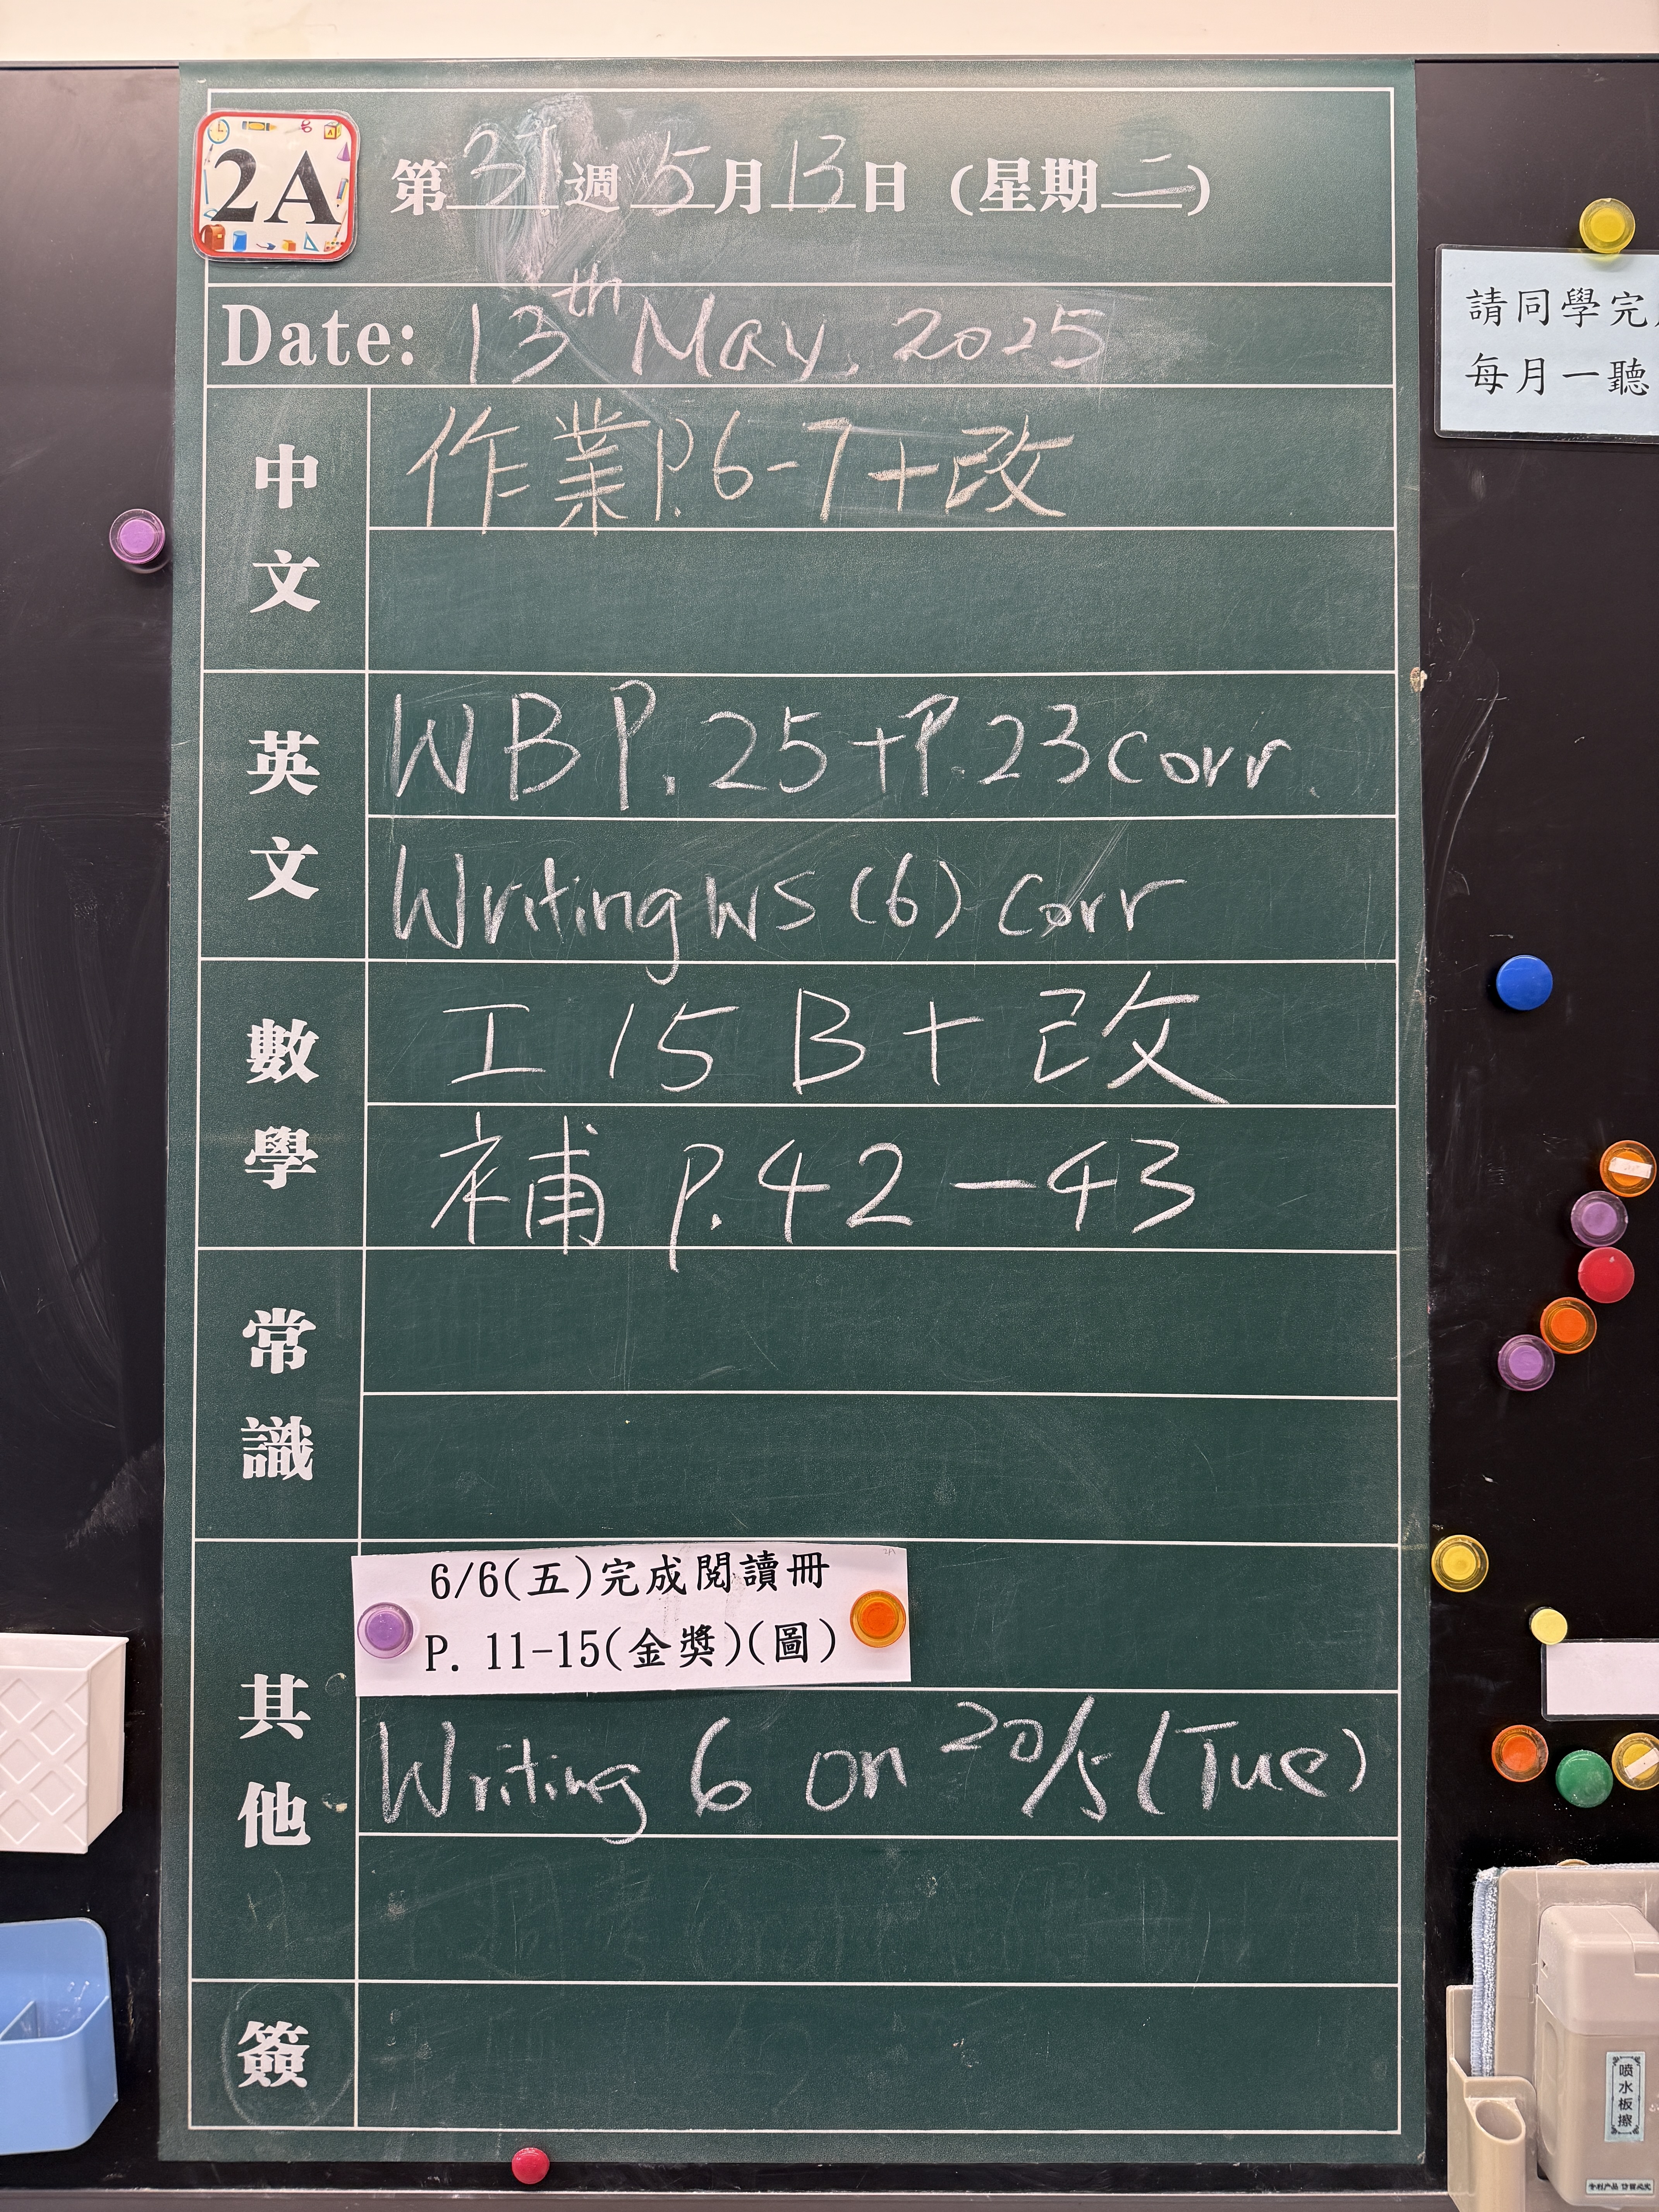 2A
第37週5月13日(星期二)
Date: 13th May, 2025
中文
作業P.6-7+改
英文
WB P.25+P.23 corr.
Writing WS (6) corr
數學
工15B+改
補 P.42-43
常識
其他
6/6(五)完成閱讀冊
P. 11-15(金獎)(圖)
Writing 6 on 20/5 (Tue)
簽
請同學完
每月一聽
喷水板擦